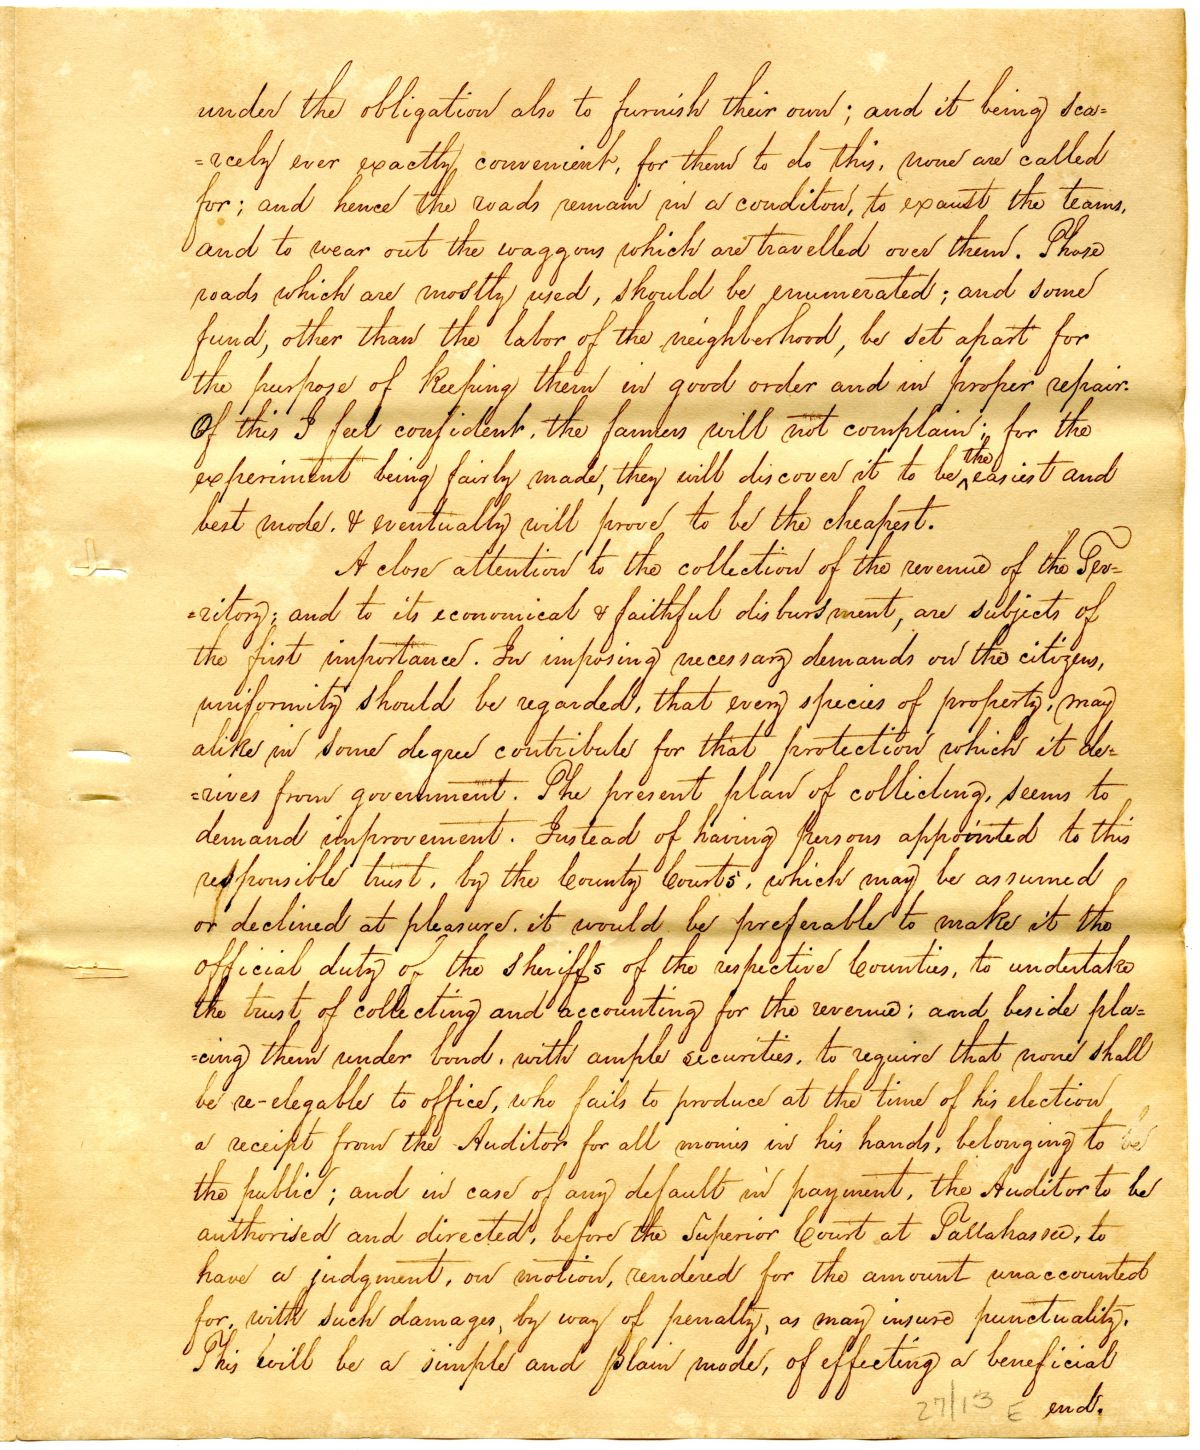 under the obligation also to furnish their own; and it being sca=
=rcely ever exactly convenient, for them to do this, none are called
for; and hence the roads remain in a conditon, to exaust the teams,
and to wear out the waggons which are travelled over them. Those
roads which are mostly used, should be enumerated; and some
fund, other than the labor of the neighberhood, be set apart for
the purpose of keeping them in good order and in proper repair.
Of this I feel confident, the farmers will not complain; for the
experiment being fairly made, they will discover it to be the easiest and
best mode, & eventually will prove to be the cheapest.
A close attention to the collection of the revenue of the Ter=
=ritory; and to its economical & faithful disbursment, are subjects of
the first importance. In imposing necessary demands on the citizens,
uniformity should be regarded, that every species of property, may
alike in some degree contribute for that protection which it de=
=rives from government. The present plan of collecting, seems to
demand improvement. Instead of having persons appointed to this
responsible trust, by the County Courts, which may be assumed
or declined at pleasure, it would be preferable to make it the
official duty of the sheriffs of the respective Counties, to undertake
the trust of collecting and accounting for the revenue; and beside pla=
=cing them under bond, with ample securities, to require that none shall
be re-elegable to office, who fails to produce at the time of his election
a receipt from the Auditor for all monies in his hands, belonging to be
the public; and in case of any default in payment, the Auditor to be
authorised and directed, before the Superior Court at Tallahassee, to
have a judgment, on motion, rendered for the amount unaccounted
for, with such damages, by way of penalty, as may insure punctuality.
This will be a simple and plain mode, of effecting a beneficial
27/13 E end.